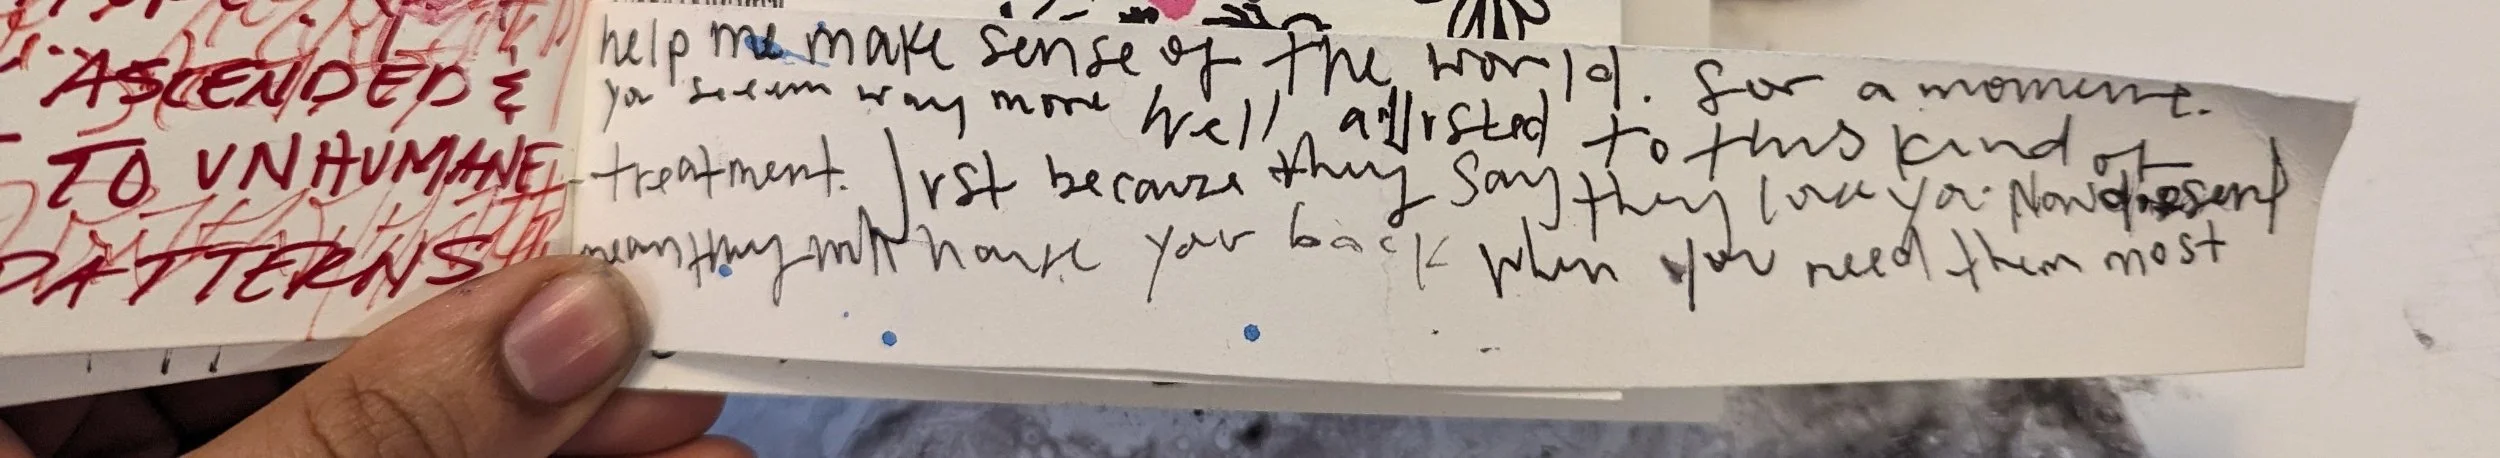 ASCENDED &
TO UNHUMANE
PATTERNS
help me make sense of the world. for a moment.
you seem way more well adjusted to this kind of
treatment. Just because they say they love you. Now doesent
mean they will have your back when you need them most